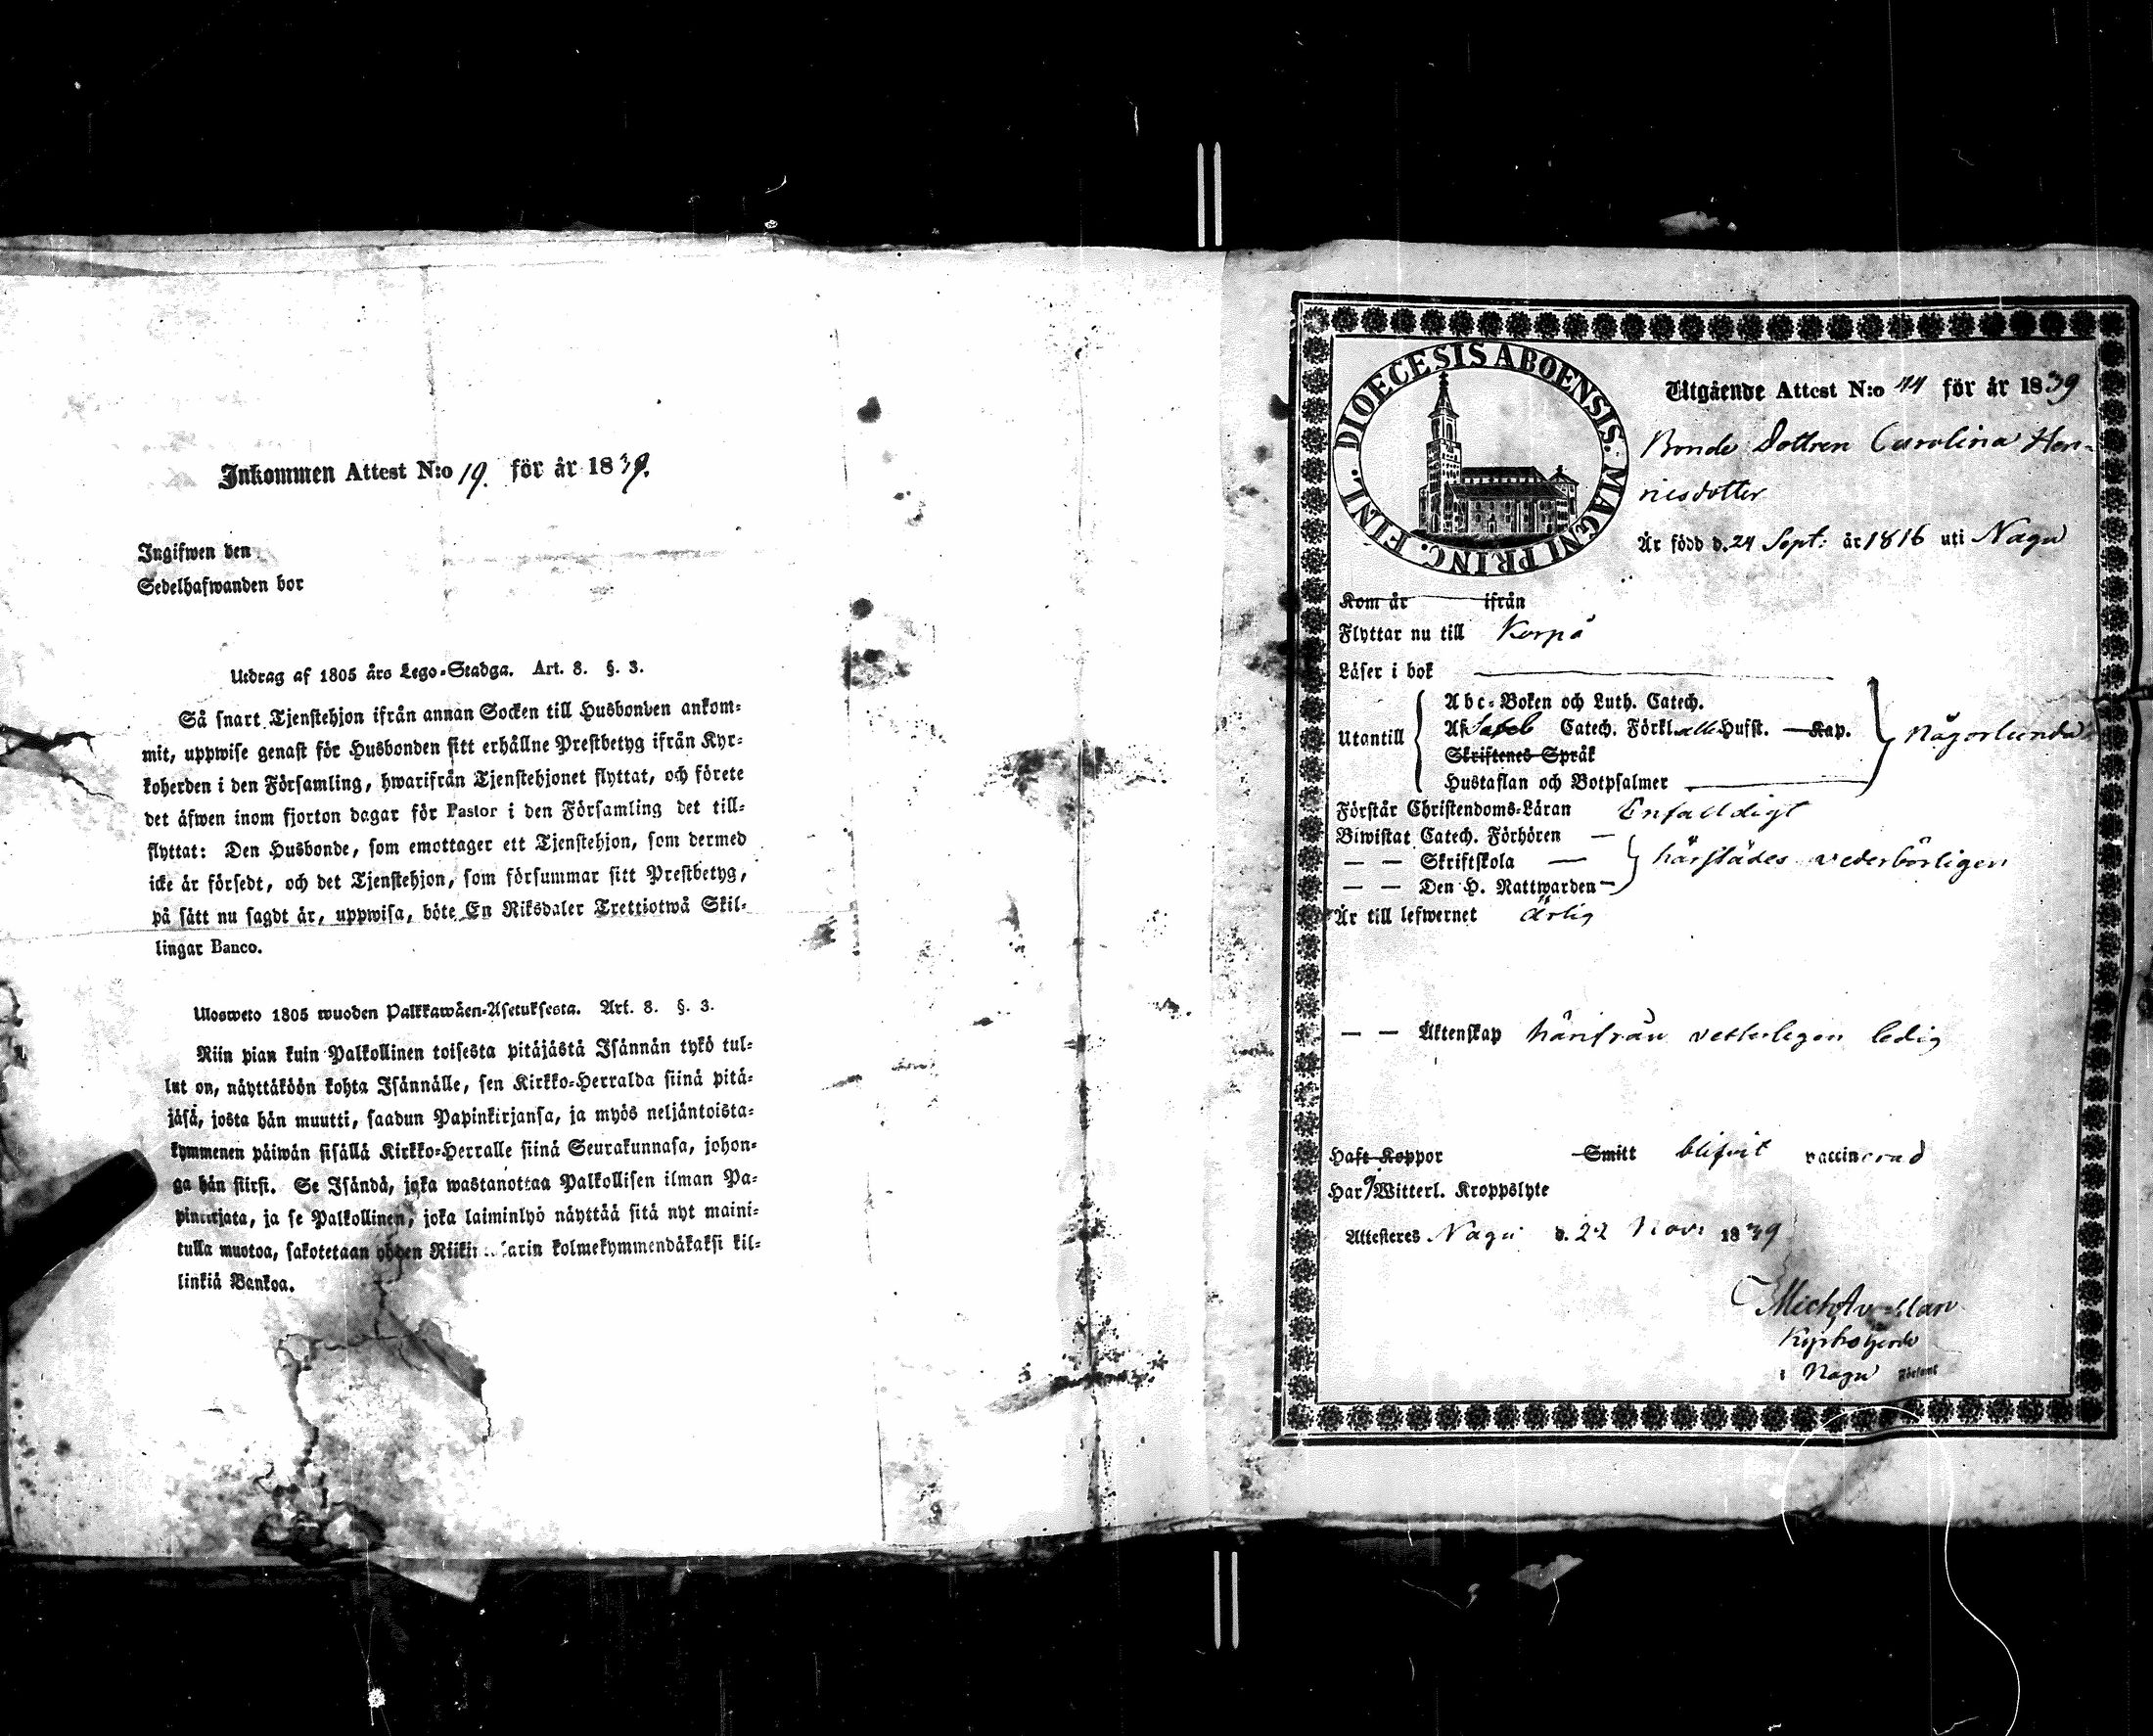 Inkommen Attest N:o 19. för år 1839.
Ingifwen den
Sedelhafwanden bor
Utdrag af 1805 års Lego-Stadga. Art. 8. §. 3.
Så snart Tjenstehjon ifrån annan Socken till Husbonden ankom-
mit, uppwise genast för Husbonden sitt erhållne Prestbetyg ifrån Kyr-
koherden i den Församling, hwarifrån Tjenstehjonet flyttat, och förete
det äfwen inom fjorton dagar för Pastor i den Församling det till-
flyttat: Den Husbonde, som emottager ett Tjenstehjon, som dermed
icke är försedt, och det Tjenstehjon, som försummar sitt Prestbetyg,
på sätt nu sagdt är, uppwisa, böte En Riksdaler Trettiotwå Skil-
lingar Banco.
Ulosweto 1805 wuoden Palkkawäen-Asetuksesta. Art. 8. §. 3.
Niin pian kuin Palkollinen toisesta pitäjästä Isännän tykö tul-
lut on, näyttäköön kohta Isännälle, sen Kirkko-Herralda siinä pitä-
jäsä, josta hän muutti, saadun Papinkirjansa, ja myös neljäntoista-
kymmenen päiwän sisällä Kirkko-Herralle siinä Seurakunnasa, johon-
ga hän siirsi. Se Isändä, joka wastanottaa Palkollisen ilman Pa-
pinkirjata, ja se Palkollinen, joka laiminlyö näyttää sitä nyt maini-
tulla muotoa, sakotetaan yhden Riikin arin kolmekymmendäkaksi kil-
linkiä Bankoa.
DIOECESIS ABOENSIS. MAGNI PRINC. FINL.
Utgående Attest N:o 44 för år 1839
Bonde Dottren Carolina Hen-
ricsdotter
Är född d. 24 Sept: år 1816 uti Nagu
Kom år ifrån
Flyttar nu till Korpå
Läser i bok
Utantill
Abc-Boken och Luth. Catech.
Af Catech. Förkl. alla Hufst. Kap.
Någorlunda
Skriftenes Språk
Hustaflan och Botpsalmer
Förstår Christendoms-Läran Enfaldigt
Biwistat Catech. Förhören —
— — Skriftskola — härstädes vederbörligen
— — Den H. Nattwarden —
Är till lefwernet ärlig
— — Äktenskap härifrån vetterlegen ledig
Haft Koppor Smitt blifvit vaccinerad
Har Witterl. Kroppslyte
Attesteres Nagu d. 22 Nov: 1839
Mich
Kyrkoherde
i Nagu Församl